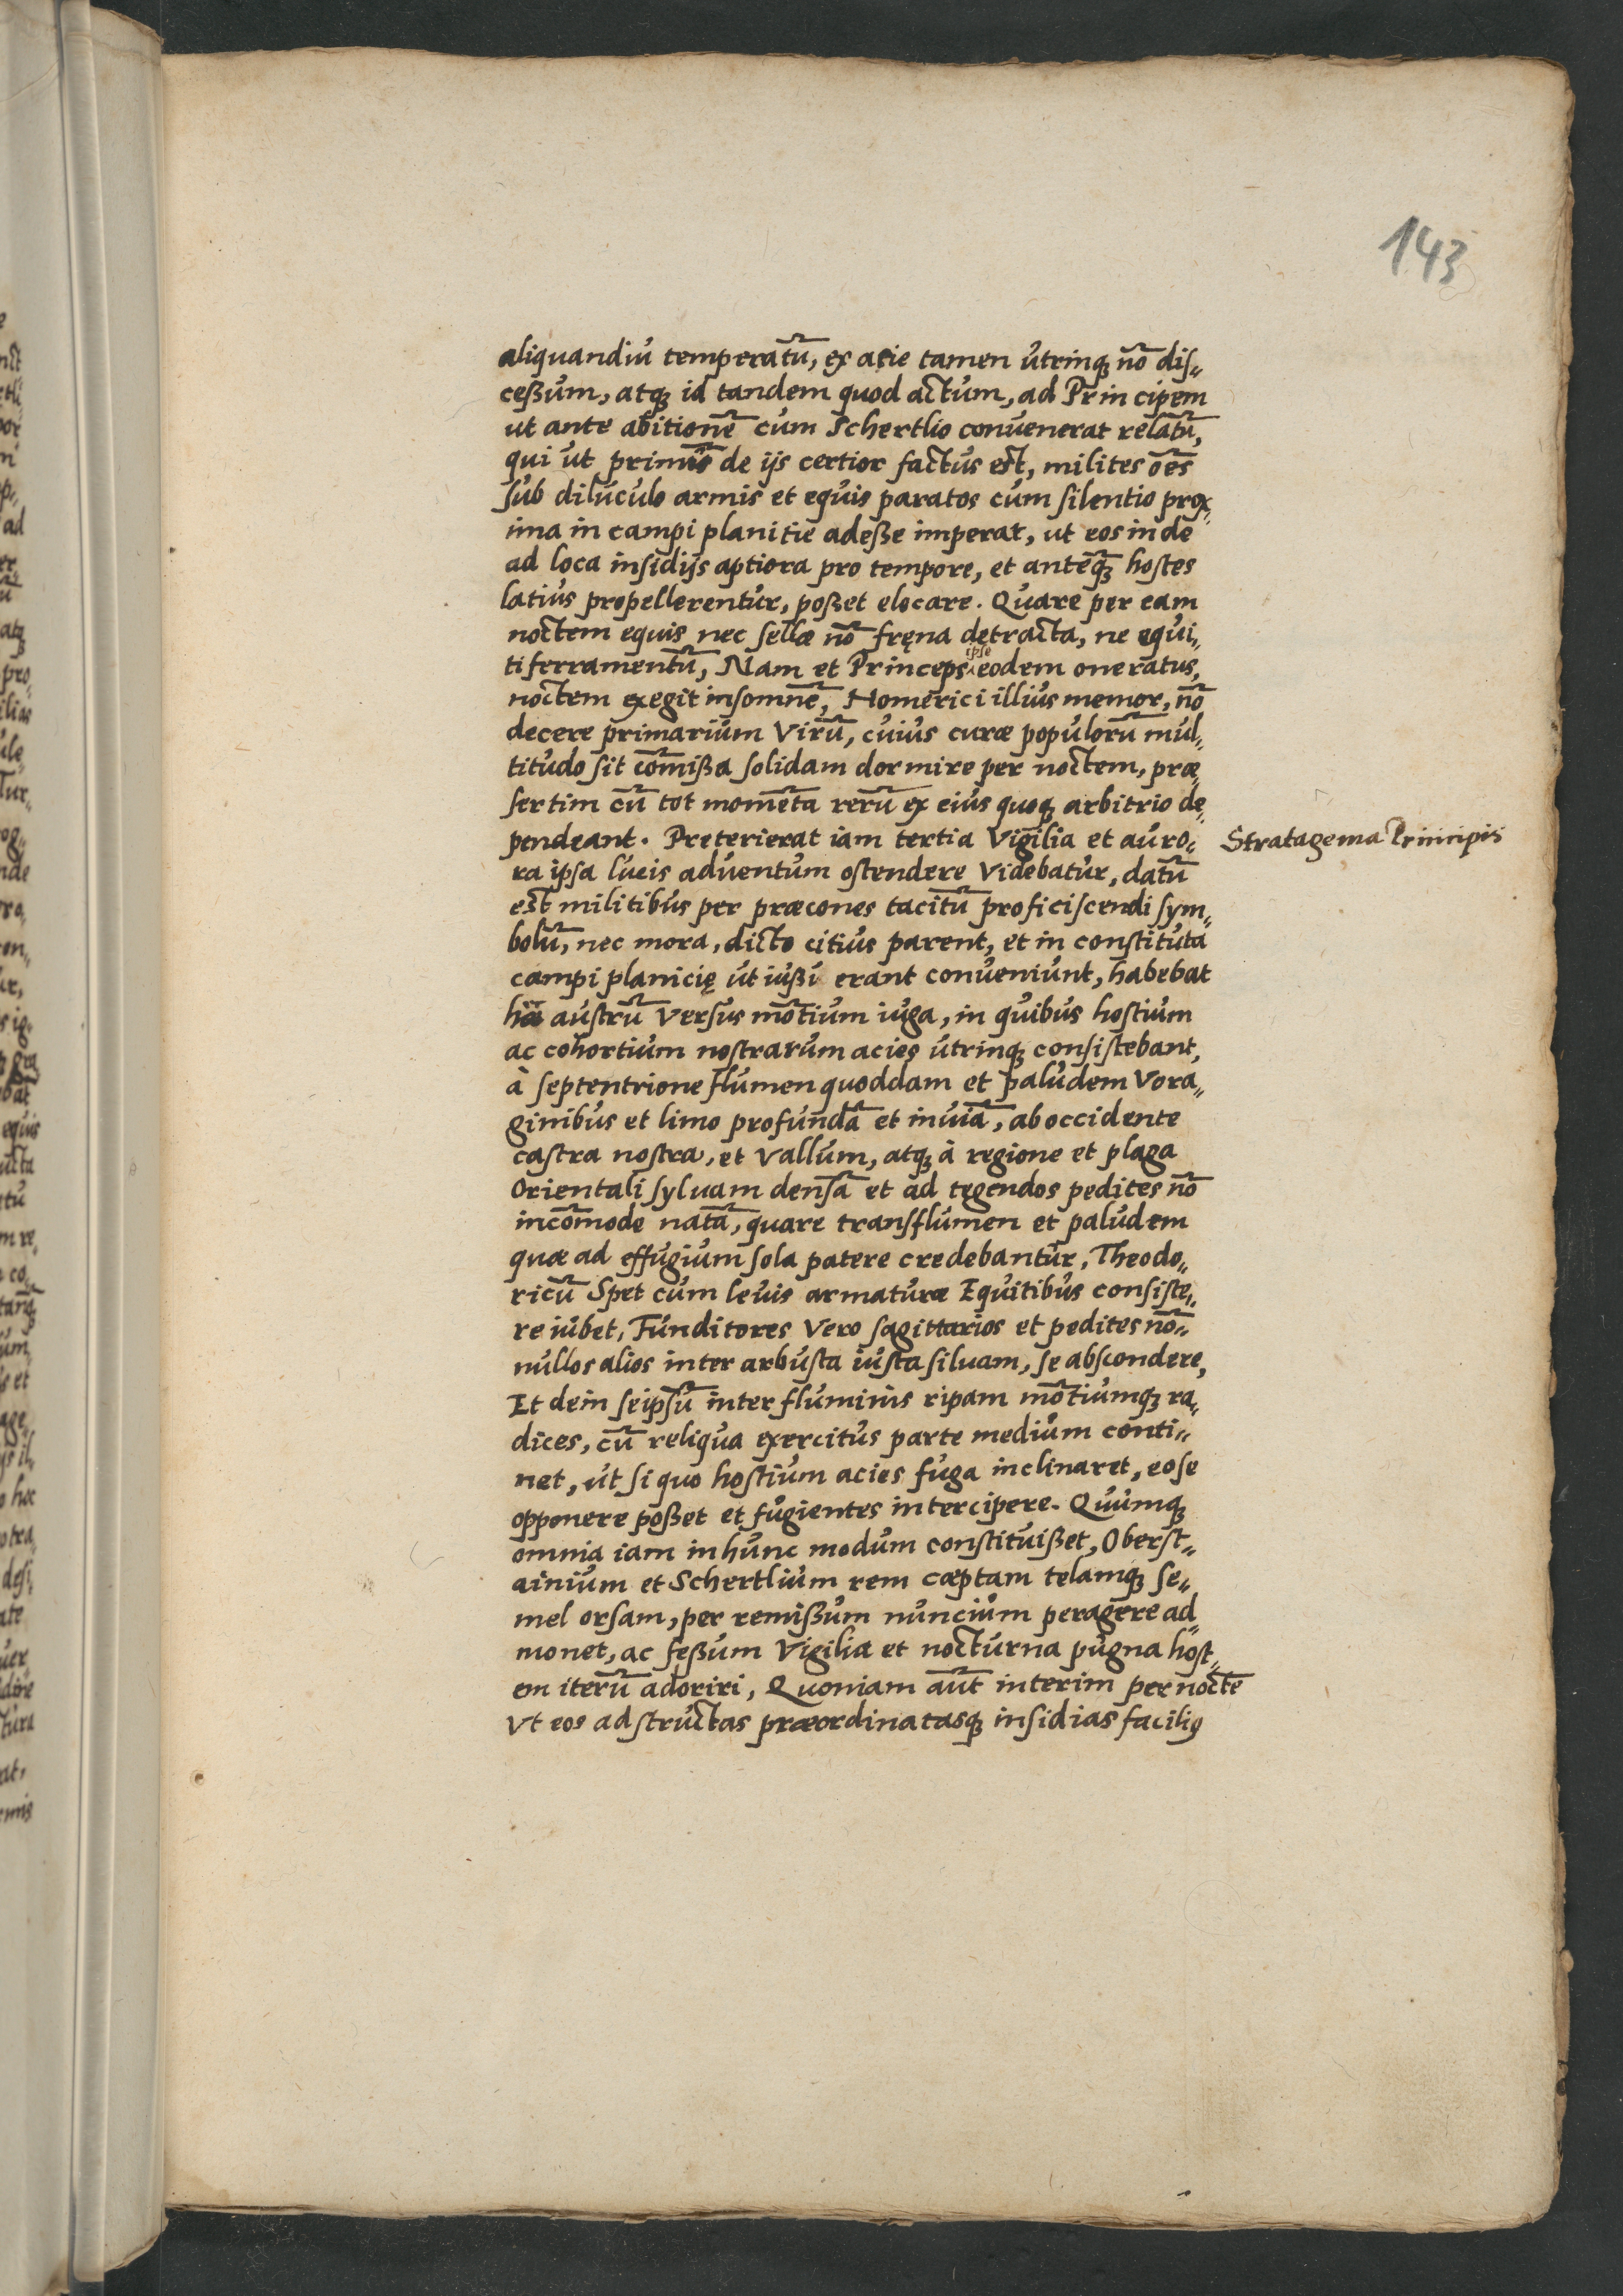 143
aliquandiu temperatũ, ex acie tamen utrinqꝫ nõ dis„
ceßum, atqꝫ id tandem quod actum, ad Principem
ut ante abitionẽ cum Schertlio convenerat relatũ,
qui ut primũ de ijs certior factus est, milites oẽs
sub diluculo armis et equis paratos cum silentio prox„
ima in campi planitie adeße imperat, ut eos inde
ad loca insidijs aptiora pro tempore, et anteq̃ꝫ hostes
latius propellerentur, poßet elocare. Quare per eam
noctem equis nec sellæ nõ fręna detracta, ne equi„
ti ferramentũ, Nam et Princeps ipse eodem oneratus,
noctem exegit insomnẽ, Homerici illius memor, nõ
decere primarium Virũ, cuius curæ populorũ mul„
titudo sit com̃ißa solidam dormire per noctem, præ„
sertim cũ tot momẽta rerũ ex eius quoqꝫ arbitrio de„
pendeant. Preterierat iam tertia Vigilia et auro„
Stratagema Principis
ra ipsa lucis adventum ostendere Videbatur, datũ
est militibus per præcones tacitũ proficiscendi sym„
bolũ, nec mora, dicto citius parent, et in constituta
campi planicię ut iußi erant conveniunt, habebat
hęc austrũ Versus mõtium iuga, in quibus hostium
ac cohortium nostrarum acies utrinqꝫ consistebant,
à septentrione flumen quoddam et paludem Vora„
ginibus et limo profundã et inuiã, ab occidente
castra nostra, et Vallum, atqꝫ à regione et plaga
Orientali syluam densã et ad tegendos pedites nõ
incõmode natã, quare trans flumen et paludem
quæ ad effugium sola patere credebantur, Theodo„
ricũ Spet cum levis armaturæ Equitibus consiste„
re iubet, Funditores Vero sagittarios et pedites nõ„
nullos alios inter arbusta iusta siluam, se abscondere,
Et dein seipsũ inter fluminis ripam mõtiumqꝫ ra„
dices, cũ reliqua exercitus parte medium conti„
net, ut si quo hostium acies fuga inclinaret, eo se
opponere poßet et fugientes intercipere. Quumqꝫ
omnia iam in hunc modum constituißet, Oberst„
ainium et Schertlium rem cæptam telamqꝫ se„
mel orsam, per remißum nuncium peragere ad„
monet, ac feßum Vigilia et nocturna pugna host„
em iterũ adoriri, Quoniam aũt interim per noctẽ
Vt eos ad structas præordinatasqꝫ insidias facilius